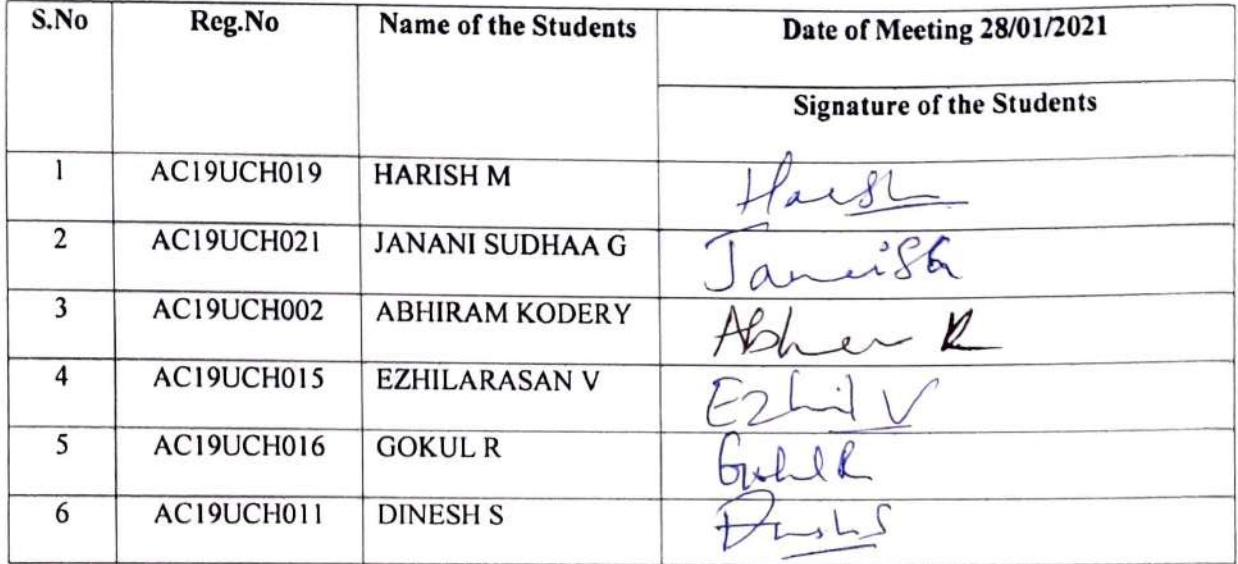 S.No Reg.No Name of the Students Date of Meeting 28/01/2021
Signature of the Students
1 AC19UCH019 HARISH M Harish
2 AC19UCH021 JANANI SUDHAA G
3 AC19UCH002 ABHIRAM KODERY
4 AC19UCH015 EZHILARASAN V Ezhil V
5 AC19UCH016 GOKUL R Gokul R
6 AC19UCH011 DINESH S